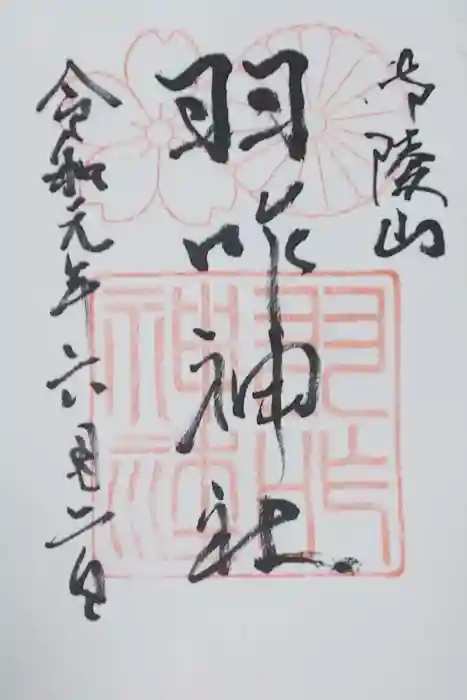 御陵山
羽咋神社
令和元年六月六日
羽咋
神社